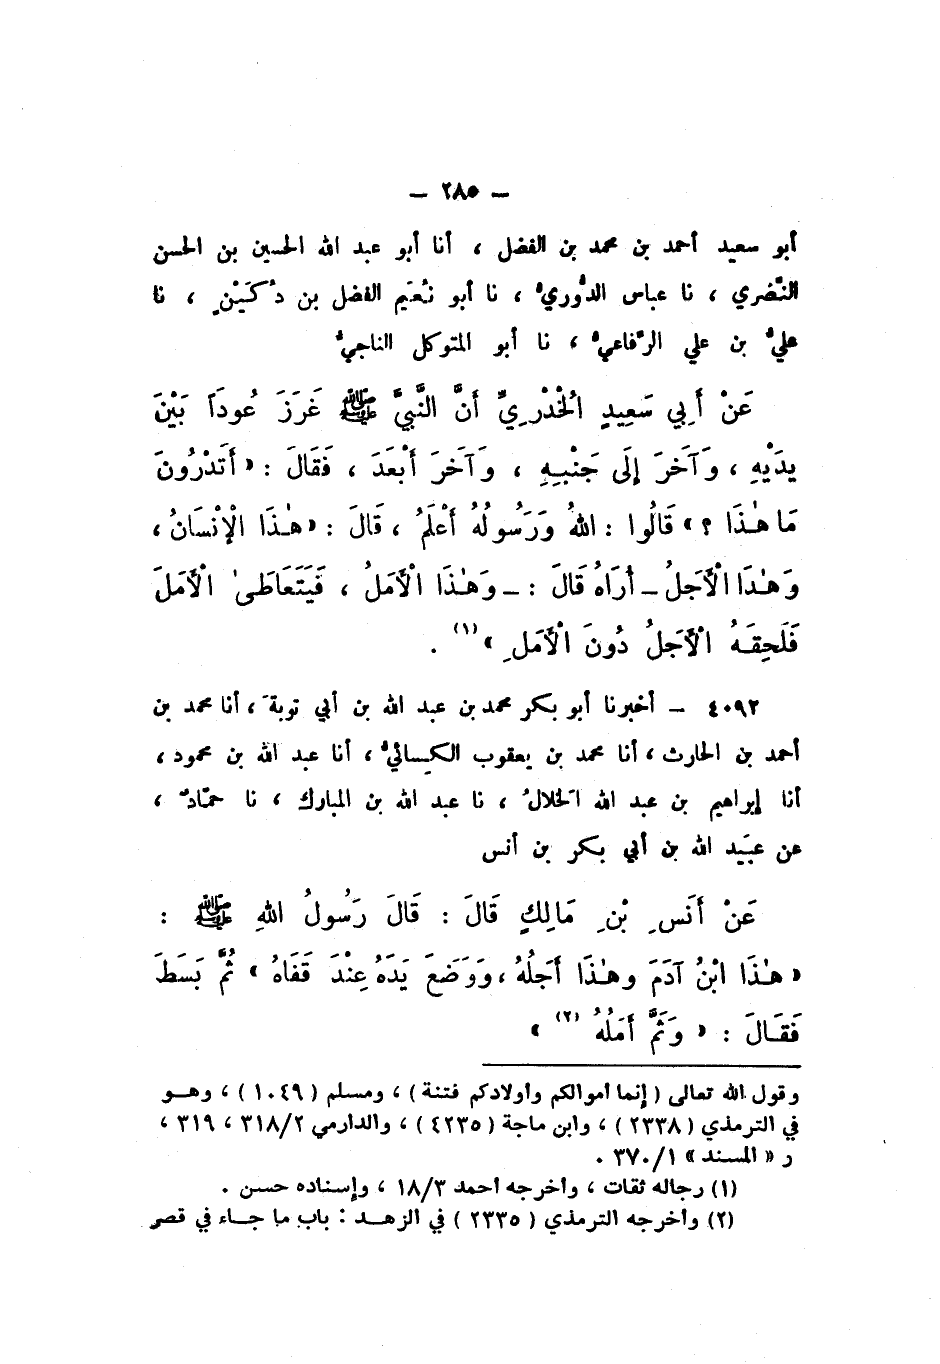 – ٢٨٥ –
أبو سعيد أحمد بن محمد بن الفضل ، أنا أبو عبد الله الحسين بن الحسن
النَّضري ، نا عباس الدُّوريُّ ، نا أبو نُعَيم الفضل بن دُكَيْنٍ ، نا
عليُّ بن علي الرِّفاعيُّ ، نا أبو المتوكل الناجيُّ
عَنْ أَبِي سَعِيدٍ الْخُدْرِيِّ أَنَّ النَّبِيَّ ﷺ غَرَزَ عُوداً بَيْنَ
يدَيْهِ ، وَآخَرَ إِلَى جَنْبِهِ ، وَآخَرَ أَبْعَدَ ، فَقَالَ : « أَتَدْرُونَ
مَا هٰذَا ؟ » قَالُوا : اللهُ وَرَسُولُهُ أَعْلَمُ ، قَالَ : « هٰذَا الْإِنْسَانُ ،
وَهٰذَا الْأَجَلُ – أُرَاهُ قَالَ : – وَهٰذَا الْأَمَلُ ، فَيَتَعَاطَىٰ الْأَمَلَ
فَلَحِقَهُ الْأَجَلُ دُونَ الْأَمَلِ » (١) .
٤٠٩٢ – أخبرنا أبو بكر محمد بن عبد الله بن أبي توبةَ ، أنا محمد بن
أحمد بن الحارث ، أنا محمد بن يعقوب الكِسائيُّ ، أنا عبد الله بن محمود ،
أنا إبراهيم بن عبد الله الخَلالُ ، نا عبد الله بن المبارك ، نا حمّادٌ ،
عن عبَيد الله بن أبي بكر بن أنس
عَنْ أَنَسِ بْنِ مَالِكٍ قَالَ : قَالَ رَسُولُ اللهِ ﷺ :
« هٰذَا ابْنُ آدَمَ وهٰذَا أَجَلُهُ ، وَوَضَعَ يَدَهُ عِنْدَ قَفَاهُ » ثُمَّ بَسَطَ
فَقَالَ : « وَثَمَّ أَمَلُهُ (٢) »
وقول الله تعالى ( إنما أموالكم وأولادكم فتنة ) ، ومسلم ( ١٠٤٩ ) ، وهو
في الترمذي ( ٢٣٣٨ ) ، وابن ماجة ( ٤٢٣٥ ) ، والدارمي ٣١٨/٢ ، ٣١٩ ،
ر « المسند » ٣٧٠/١ .
(١) رجاله ثقات ، وأخرجه أحمد ١٨/٣ ، وإسناده حسن .
(٢) وأخرجه الترمذي ( ٢٣٣٥ ) في الزهد : باب ما جاء في قصر